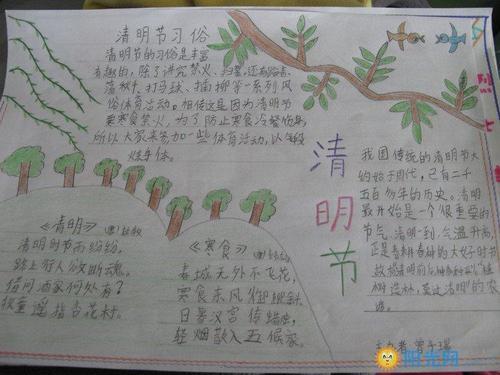 清明节习俗
清明节的习俗是丰富
有趣的，除了讲究禁火、扫墓，还有踏青、
荡秋千、打马球、插柳等一系列风
俗体育活动。相传这是因为清明节
要寒食禁火，为了防止寒食冷餐伤身，
所以大家来参加一些体育活动，以锻
炼身体。
《清明》
清明时节雨纷纷，
路上行人欲断魂。
借问酒家何处有？
牧童遥指杏花村。
《寒食》
春城无处不飞花，
寒食东风御柳斜。
日暮汉宫传蜡烛，
轻烟散入五侯家。
清
明
节
我国传统的清明节大
约始于周代，已有二千
五百多年的历史。清明
最开始是一个很重要的
节气，清明一到，气温升高，
正是春耕春种的大好时节，
故有"清明前后，种瓜种豆""植
树造林，莫过清明"的农
谚。
主办者
阳光网